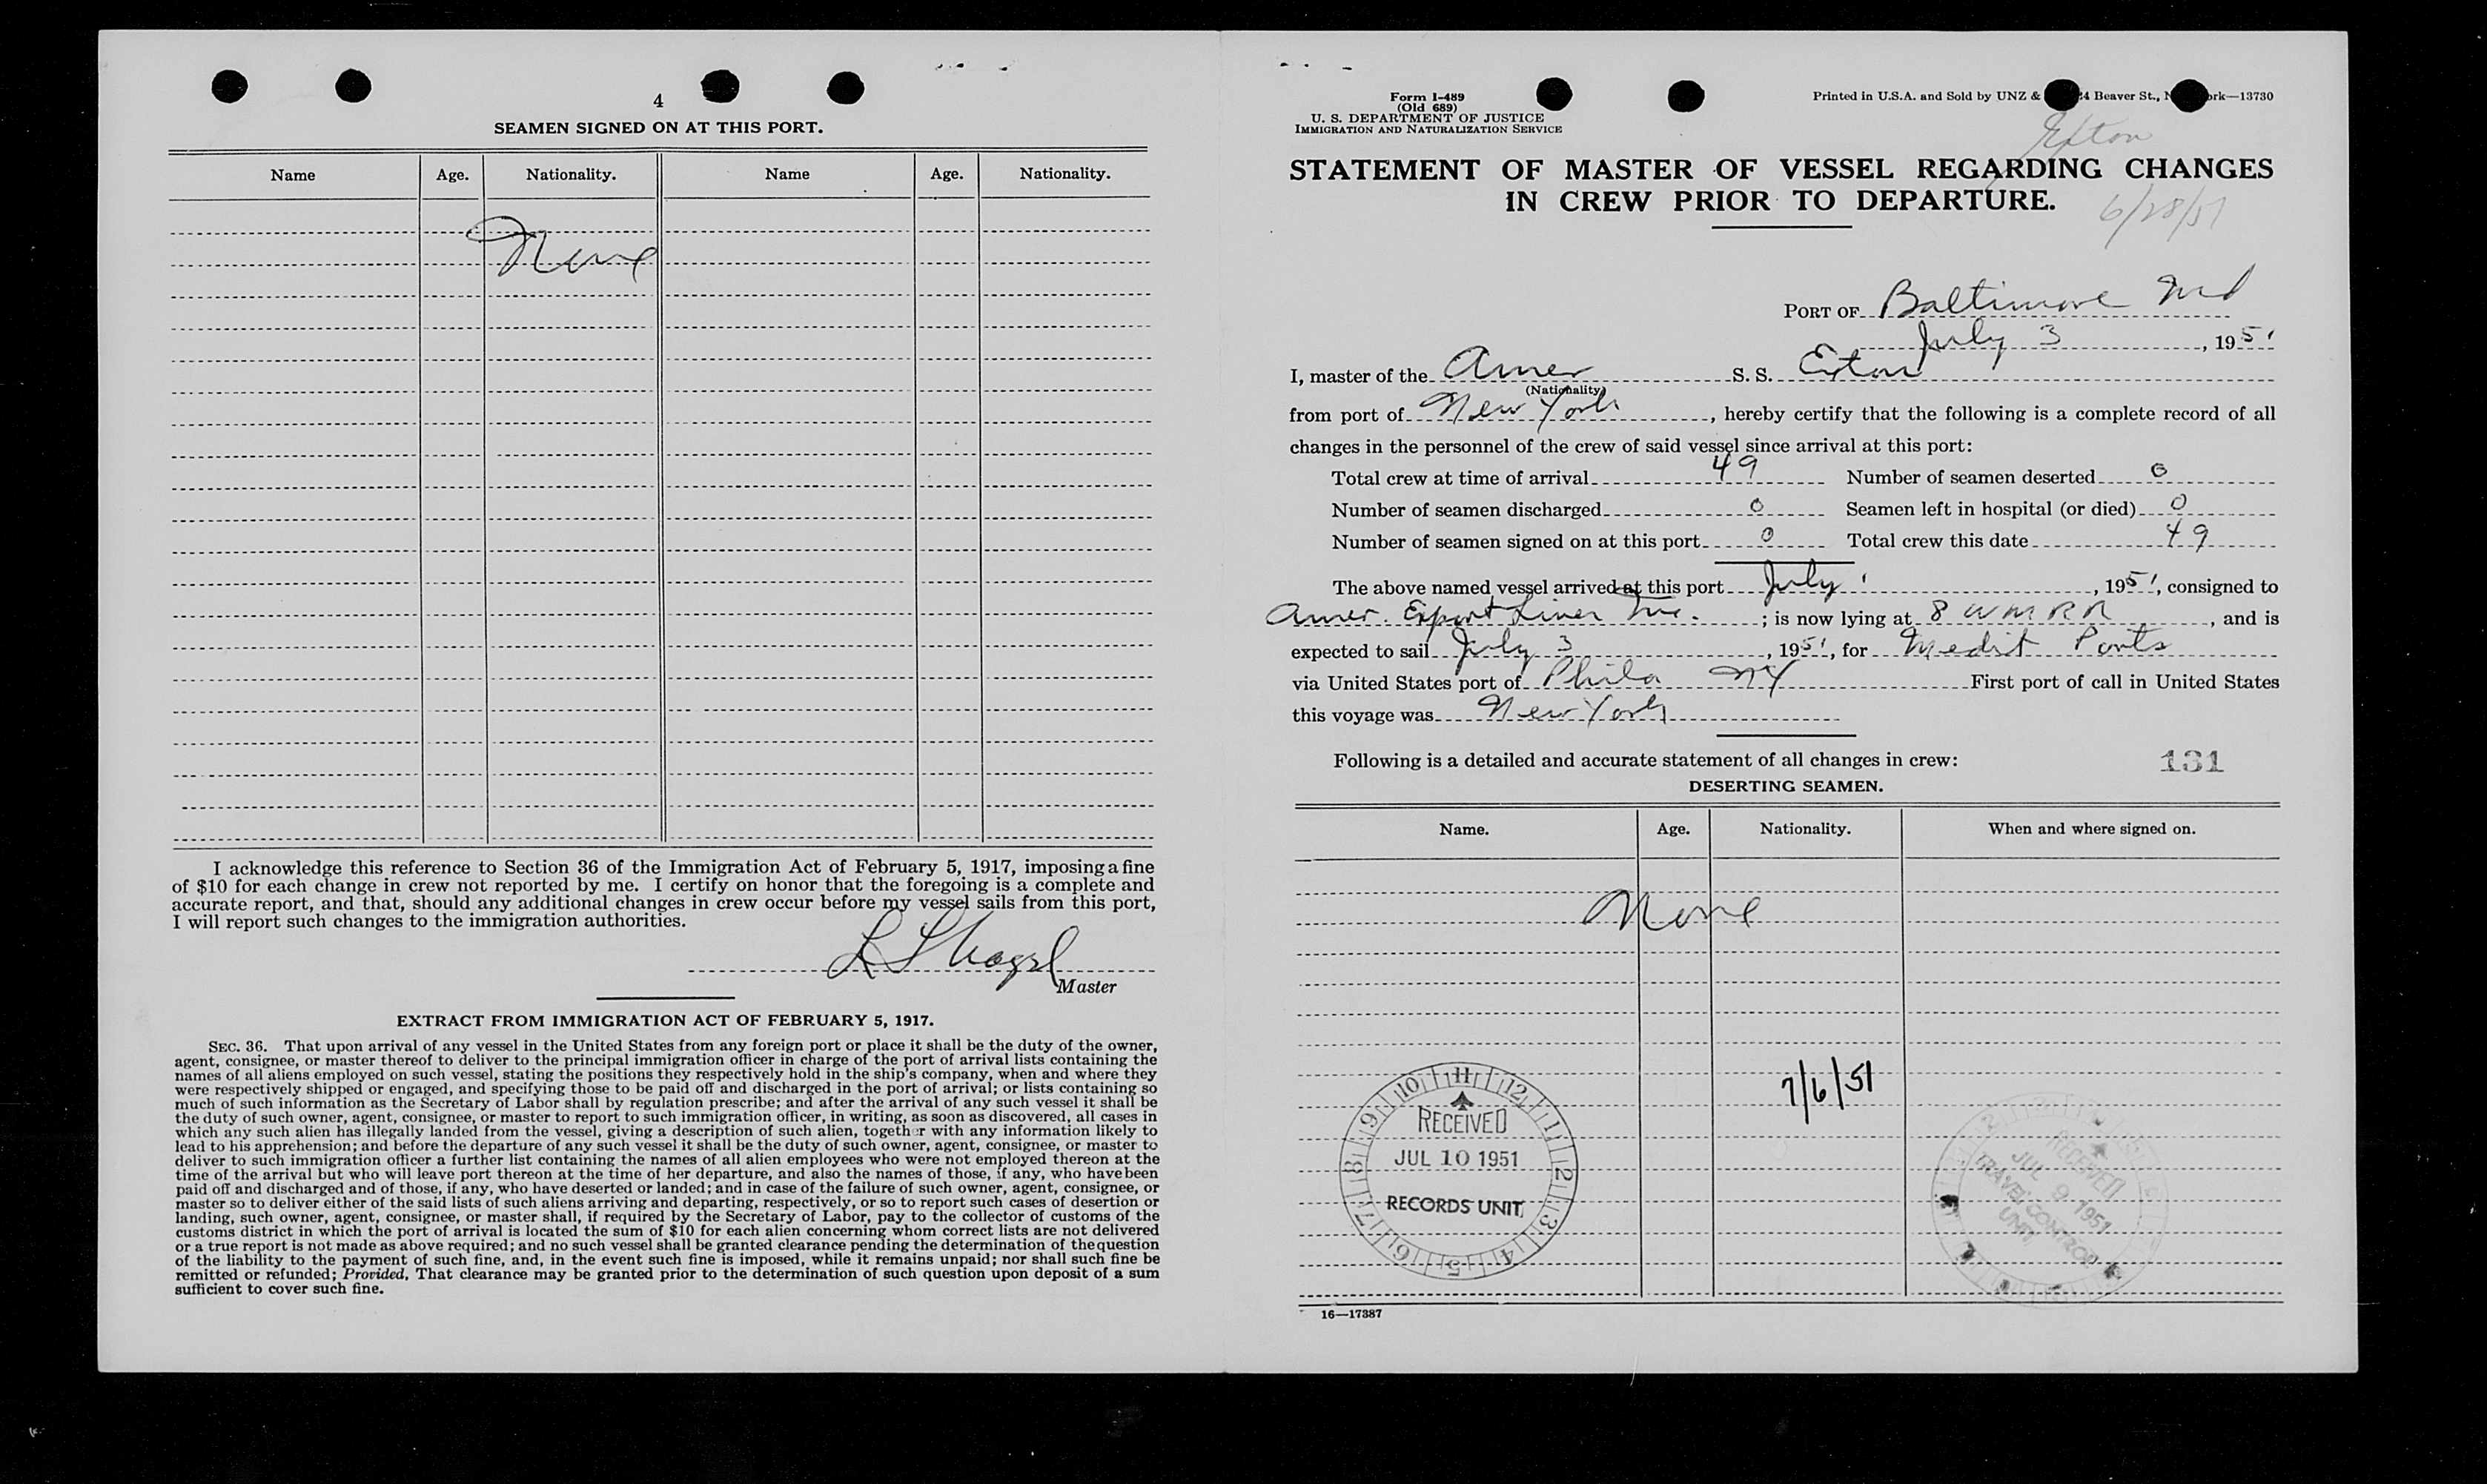 4
SEAMEN SIGNED ON AT THIS PORT.
Name Age. Nationality. Name Age. Nationality.
None
I acknowledge this reference to Section 36 of the Immigration Act of February 5, 1917, imposing a fine
of $10 for each change in crew not reported by me. I certify on honor that the foregoing is a complete and
accurate report, and that, should any additional changes in crew occur before my vessel sails from this port,
I will report such changes to the immigration authorities.
Master
EXTRACT FROM IMMIGRATION ACT OF FEBRUARY 5, 1917.
SEC. 36. That upon arrival of any vessel in the United States from any foreign port or place it shall be the duty of the owner,
agent, consignee, or master thereof to deliver to the principal immigration officer in charge of the port of arrival lists containing the
names of all aliens employed on such vessel, stating the positions they respectively hold in the ship's company, when and where they
were respectively shipped or engaged, and specifying those to be paid off and discharged in the port of arrival; or lists containing so
much of such information as the Secretary of Labor shall by regulation prescribe; and after the arrival of any such vessel it shall be
the duty of such owner, agent, consignee, or master to report to such immigration officer, in writing, as soon as discovered, all cases in
which any such alien has illegally landed from the vessel, giving a description of such alien, together with any information likely to
lead to his apprehension; and before the departure of any such vessel it shall be the duty of such owner, agent, consignee, or master to
deliver to such immigration officer a further list containing the names of all alien employees who were not employed thereon at the
time of the arrival but who will leave port thereon at the time of her departure, and also the names of those, if any, who have been
paid off and discharged and of those, if any, who have deserted or landed; and in case of the failure of such owner, agent, consignee, or
master so to deliver either of the said lists of such aliens arriving and departing, respectively, or so to report such cases of desertion or
landing, such owner, agent, consignee, or master shall, if required by the Secretary of Labor, pay to the collector of customs of the
customs district in which the port of arrival is located the sum of $10 for each alien concerning whom correct lists are not delivered
or a true report is not made as above required; and no such vessel shall be granted clearance pending the determination of the question
of the liability to the payment of such fine, and, in the event such fine is imposed, while it remains unpaid; nor shall such fine be
remitted or refunded; Provided, That clearance may be granted prior to the determination of such question upon deposit of a sum
sufficient to cover such fine.
Form I-489
(Old 689)
U. S. DEPARTMENT OF JUSTICE
IMMIGRATION AND NATURALIZATION SERVICE
Printed in U.S.A. and Sold by UNZ & 24 Beaver St., 13730
Exton
STATEMENT OF MASTER OF VESSEL REGARDING CHANGES
IN CREW PRIOR TO DEPARTURE.
6/28/51
PORT OF Baltimore Md
July 3, 1951
I, master of the Amer S. S. Exton
(Nationality)
from port of New York, hereby certify that the following is a complete record of all
changes in the personnel of the crew of said vessel since arrival at this port:
Total crew at time of arrival 49 Number of seamen deserted 0
Number of seamen discharged 0 Seamen left in hospital (or died) 0
Number of seamen signed on at this port 0 Total crew this date 49
The above named vessel arrived at this port July 1, 1951, consigned to
Amer. Export Lines Inc.; is now lying at 8 W M R R, and is
expected to sail July 3, 1951, for Medit Ports
via United States port of Phila NY First port of call in United States
this voyage was New York
Following is a detailed and accurate statement of all changes in crew:
131
DESERTING SEAMEN.
Name. Age. Nationality. When and where signed on.
None
7/6/51
10 11 12 1 2 3 4 5 6 7 8 9
RECEIVED
JUL 10 1951
RECORDS UNIT
RECEIVED
JUL 9 1951
TRAVEL CONTROL
UNIT
16—17387